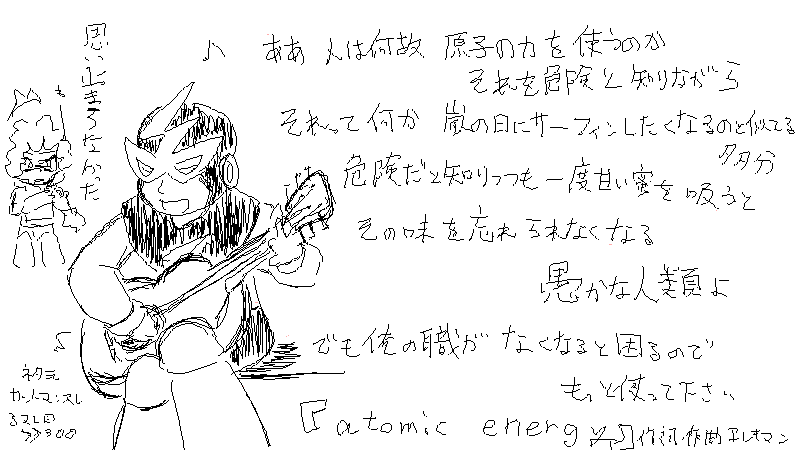 ♪ ああ 人は何故 原子の力を使うのか
それを危険と知りながら
それって何か 嵐の日にサーフィンしたくなるのと似てる
多分
危険だと知りつつも一度甘い蜜を吸うと
その味を忘れられなくなる
愚かな人類よ
でも俺の職がなくなると困るので
もっと使って下さい
『atomic energy』作詞・作曲 エレキマン
思い止まろなかだ
ネタ元
カットマンスレ
スレ目
>>300